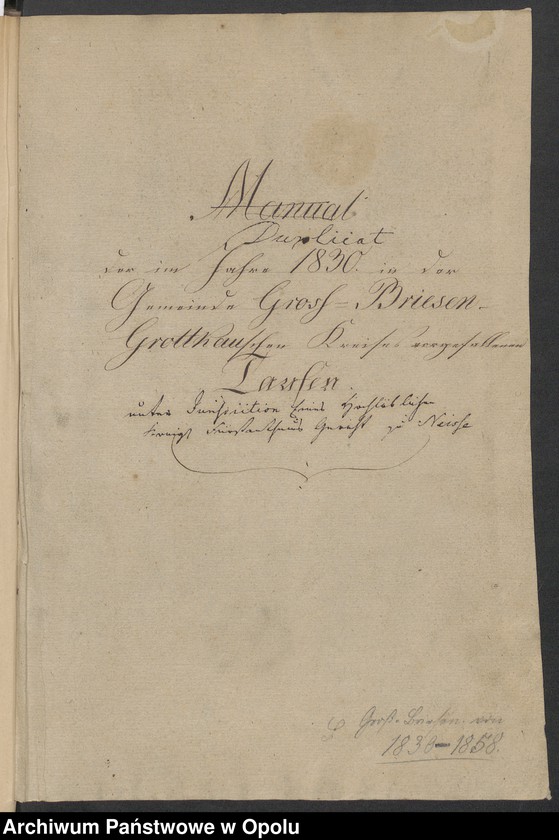 Manual
Duplicat
der im Jahre 1830. in der
Gemeinde Gross-Briesen
Grottkauschen Kreises vorgefallenen
Taufen.
unter Jurisdiction Eines Hochlöblichen
Königl Fürstenthums Gericht zu Neisse
Groß-Briesen von
1830-1858.
Archiwum Państwowe w Opolu